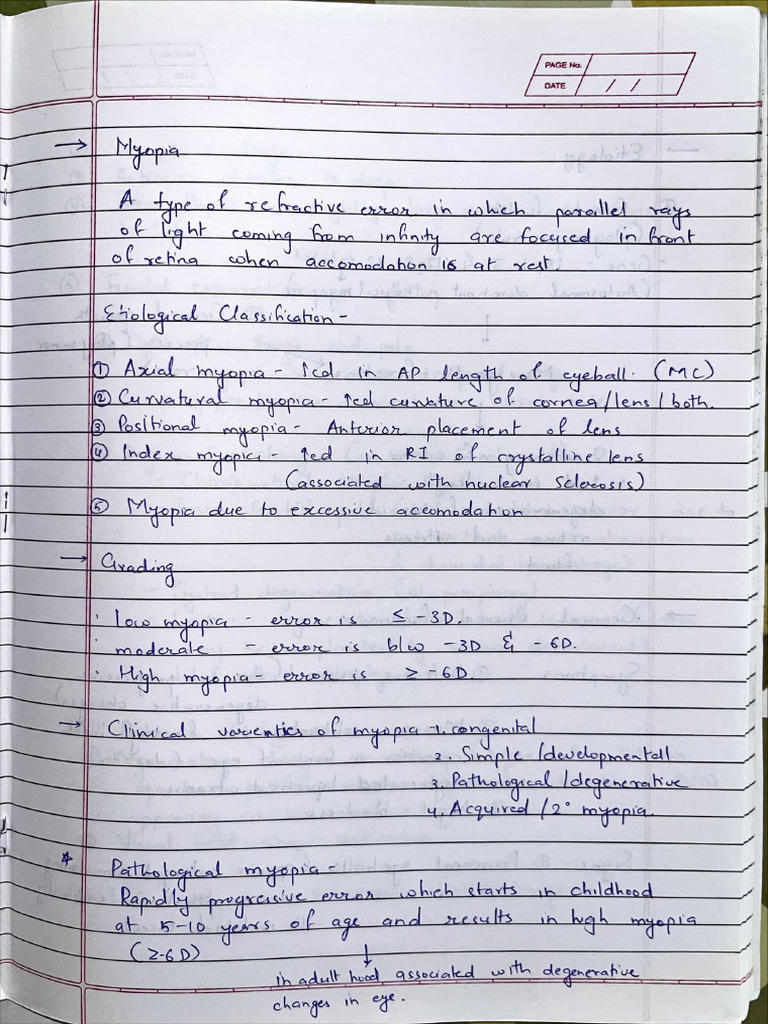 PAGE No.
DATE / /
→ Myopia
A type of refractive error in which parallel rays
of light coming from infinity are focused in front
of retina when accomodation is at rest.
Etiological Classification -
① Axial myopia - ↑ed in AP length of eyeball. (MC)
② Curvatural myopia - ↑ed curvature of cornea/lens/both.
③ Positional myopia - Anterior placement of lens
④ Index myopia - ↑ed in RI of crystalline lens
(associated with nuclear sclerosis)
⑤ Myopia due to excessive accomodation
→ Grading
· low myopia - error is ≤ -3D.
· moderate - error is b/w -3D & -6D.
· High myopia - error is ≥ -6D.
→ Clinical varienties of myopia - 1. congenital
2. Simple /developmentall
3. Pathological /degenerative
4. Acquired /2° myopia.
* Pathological myopia -
Rapidly progressive error which starts in childhood
at 5-10 years of age and results in high myopia
(≥-6D) ↓
in adult hood associated with degenerative
changes in eye.